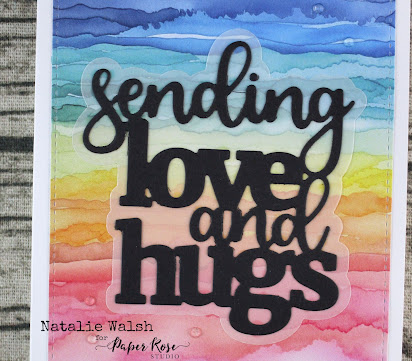 sending
love
and
hugs
Natalie Walsh
for
Paper Rose
STUDIO